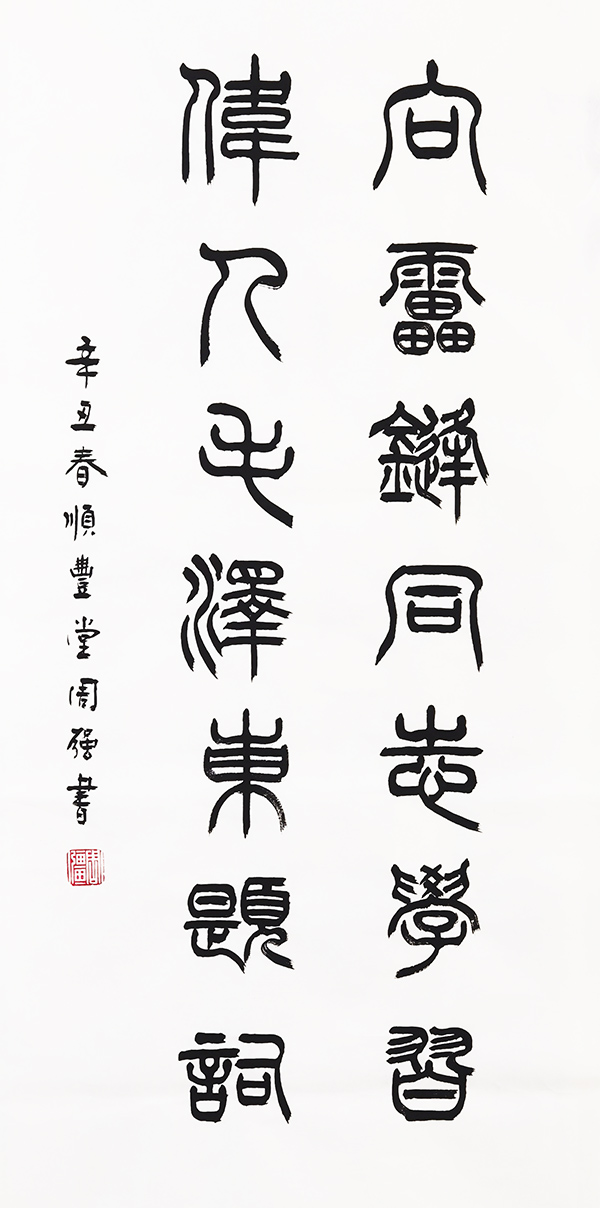 向靁鏠同志學習
偉人毛澤東題詞
辛丑春順豐堂周强書
周彊